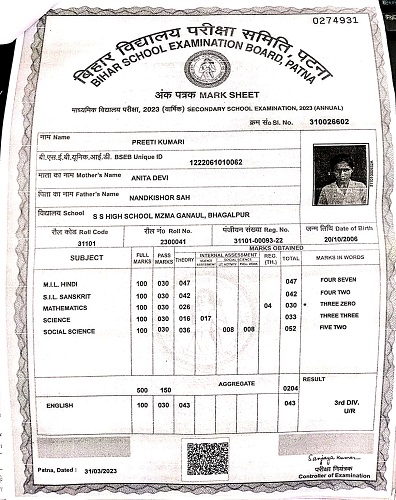 0274931
बिहार विद्यालय परीक्षा समिति पटना
BIHAR SCHOOL EXAMINATION BOARD, PATNA
अंक पत्रक MARK SHEET
माध्यमिक विद्यालय परीक्षा, 2023 (वार्षिक) SECONDARY SCHOOL EXAMINATION, 2023 (ANNUAL)
क्रम सं० Sl. No. 310026602
नाम Name
PREETI KUMARI
बी.एस.ई.बी.यूनिक.आई.डी. BSEB Unique ID
1222061010062
माता का नाम Mother's Name
ANITA DEVI
पिता का नाम Father's Name
NANDKISHOR SAH
विद्यालय School S S HIGH SCHOOL MZMA GANAUL, BHAGALPUR
रौल कोड Roll Code रौल नं० Roll No. पंजीयन संख्या Reg. No. जन्म तिथि Date of Birth
31101 2300041 31101-00093-22 20/10/2006
MARKS OBTAINED
SUBJECT FULL MARKS PASS MARKS THEORY INTERNAL ASSESSMENT REG. (TH.) TOTAL MARKS IN WORDS
M.I.L. HINDI 100 030 047 047 FOUR SEVEN
S.I.L. SANSKRIT 100 030 042 042 FOUR TWO
MATHEMATICS 100 030 026 04 030 * THREE ZERO
SCIENCE 100 030 016 017 033 THREE THREE
SOCIAL SCIENCE 100 030 036 008 008 052 FIVE TWO
AGGREGATE RESULT
500 150 0204
ENGLISH 100 030 043 043 3rd DIV.
U/R
Sanjaya Kumar
Patna, Dated : 31/03/2023
परीक्षा नियंत्रक
Controller of Examination